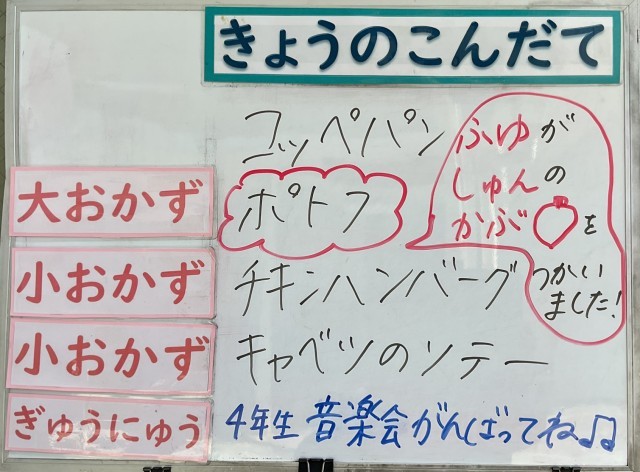 きょうのこんだて
コッペパン
大おかず ポトフ
ふゆが
しゅんの
かぶを
つかい
ました!
小おかず チキンハンバーグ
小おかず キャベツのソテー
ぎゅうにゅう 4年生 音楽会がんばってね♫